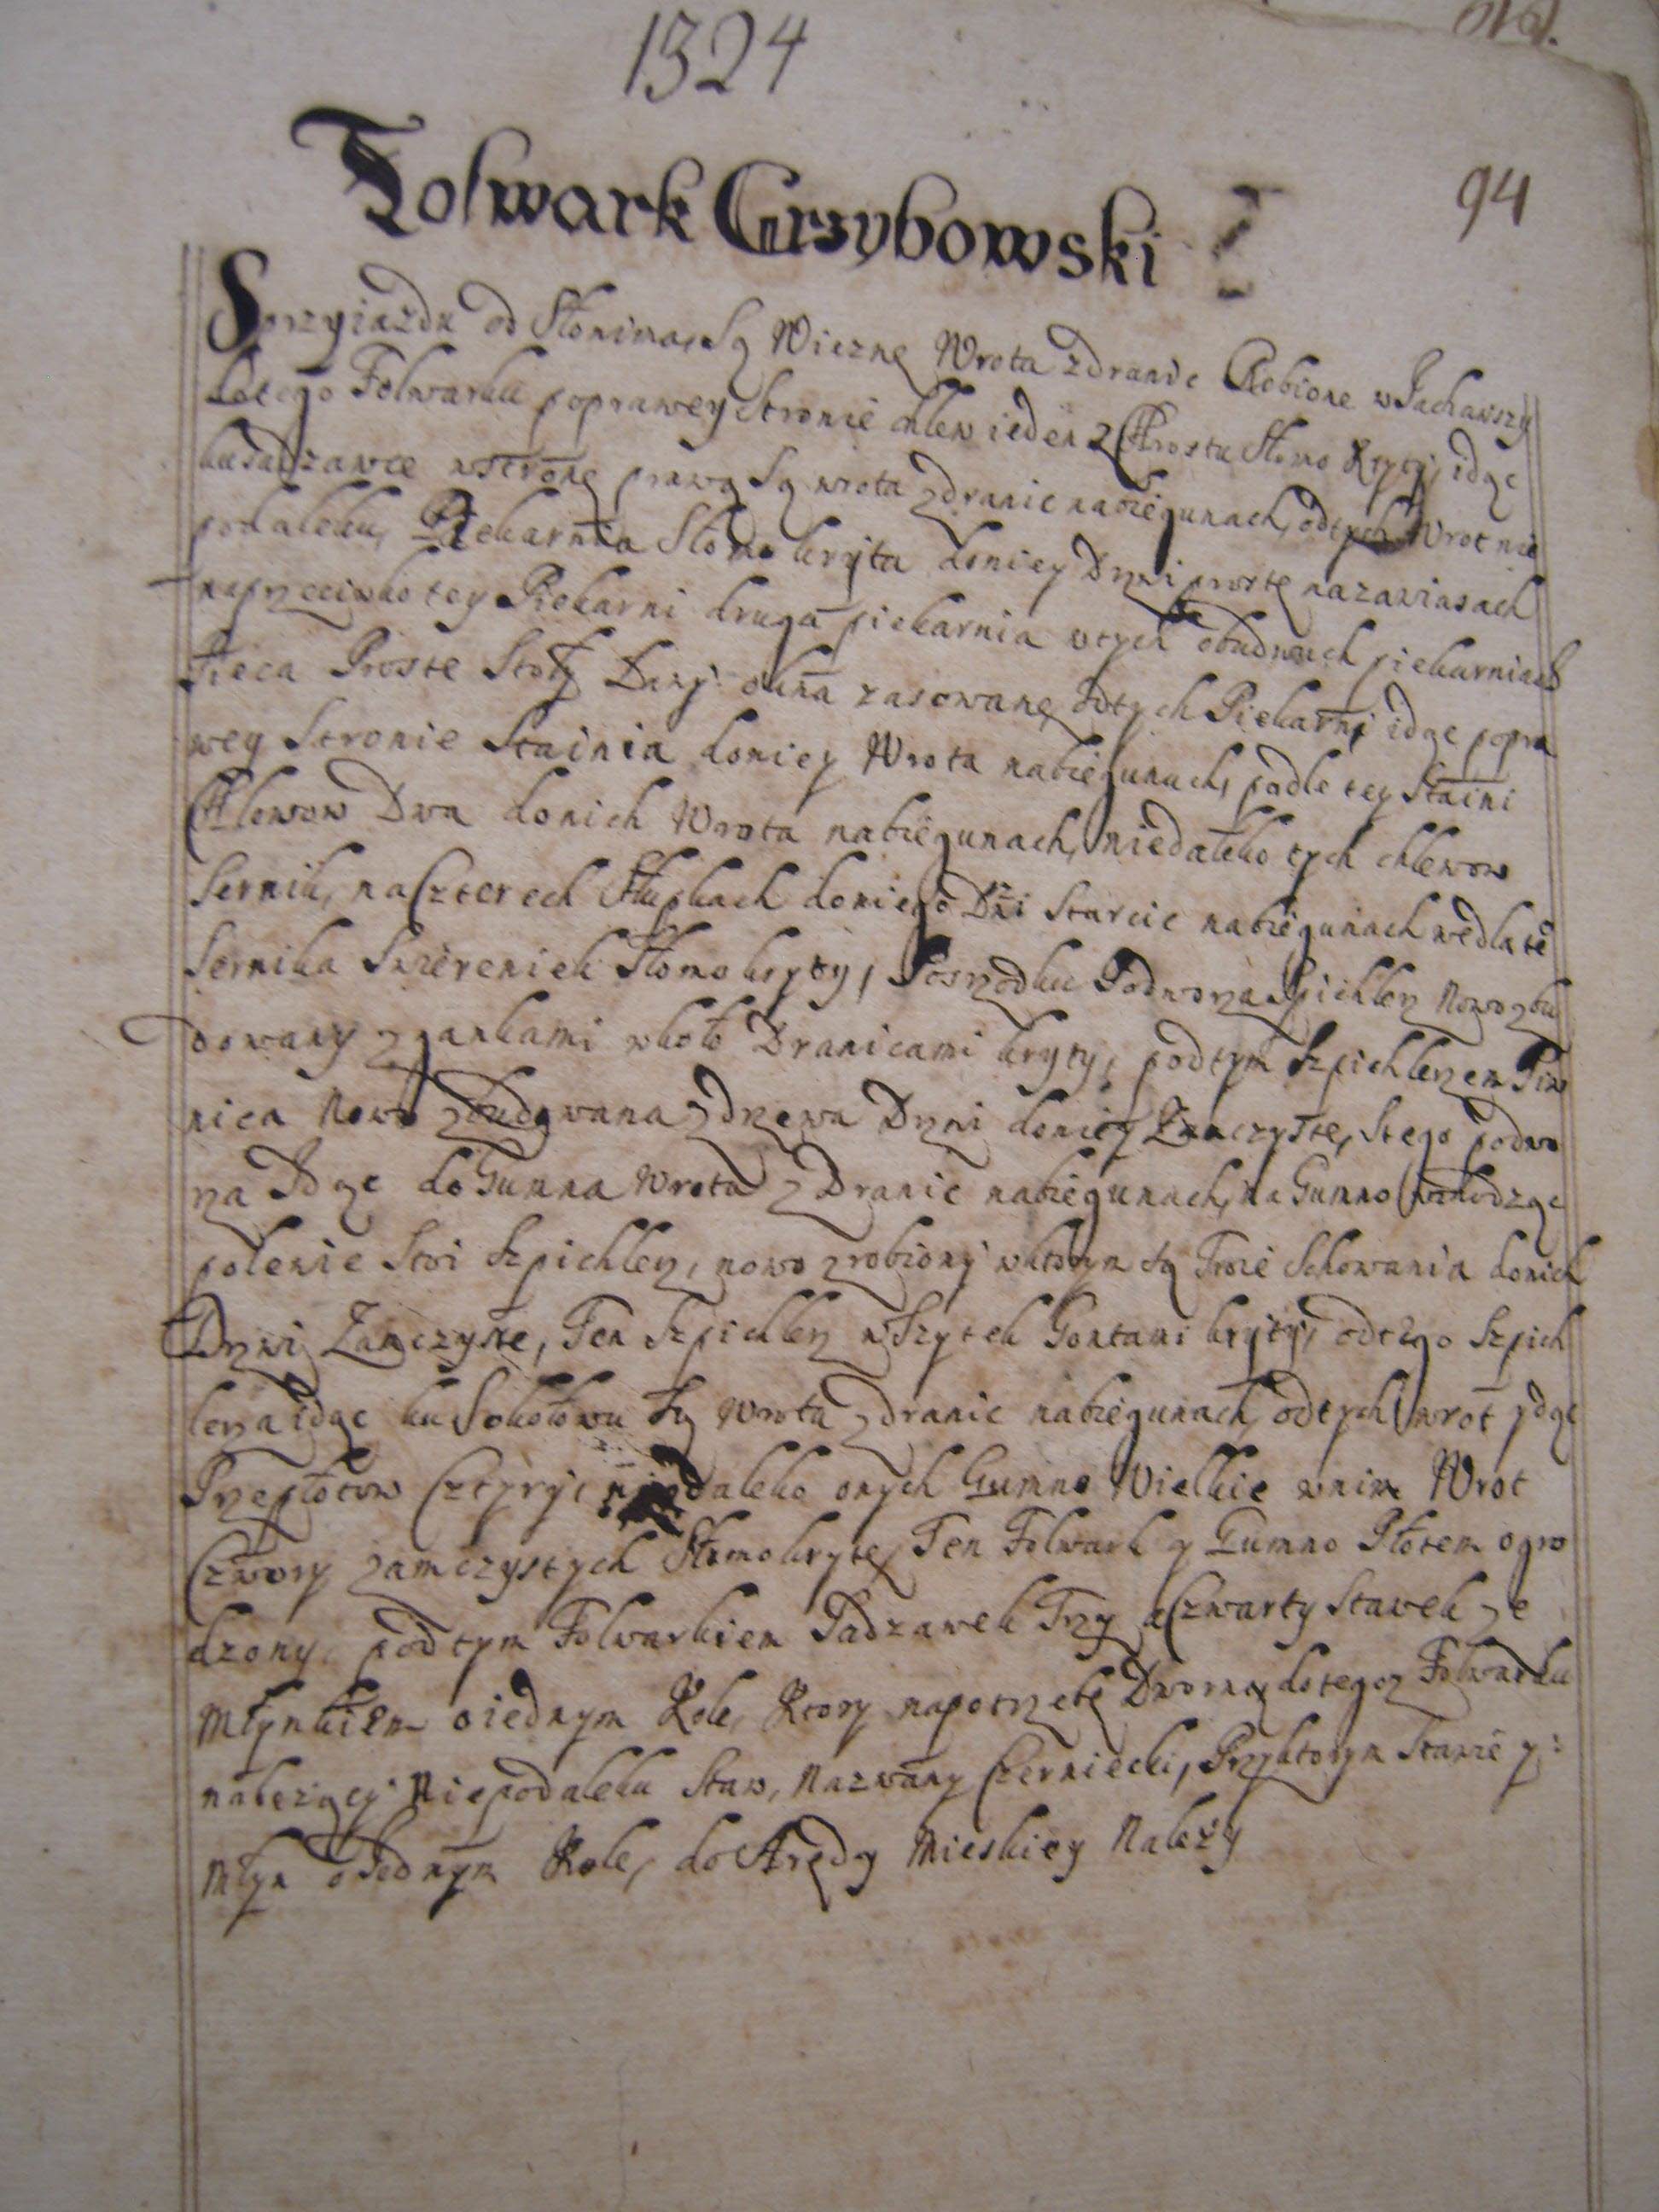 1324
94
Folwark Grzybowski
S przyiazdu od Słonima, Są Wiezne Wrota zdranic Robione wJachawszy
dotego Folwarku poprawey stronie chlew ieden z Chrostu Słomo Kryty, idąc
kusadzawce wstrone prawą Są wrota zdranic nabiegunach, odtych Wrot nie
podaleku, Piekarnia Słomo kryta doniey Drzwi proste nazawiasach
naprzeciwko tey Piekarni druga piekarnia wtych obudwuch piekarniach
Pieca Proste Stoły Ławy okna zasowane, odtych Piekarni idąc popra
wey Stronie Stainia doniey Wrota nabiegunach, podle tey Stainī
Chlewow Dwa donich Wrota nabiegunach, niedaleko tych chlewow
Sernik, naCzterech Słupkach doniego Drzi Starcic nabiegunach wedla te
Sernika Swireniek Słomo kryty, Posrzodku Podworza Spichlerz Nowo zbu
dowany zgankami wkoło Dranicami kryty, podtym Szpichlerzem Piw
nica Nowo zbudowana zdrzewa Drzwi doniey Zamczyste, Stego podwo
rza Jdąc do Gumna Wrota z Dranic nabiegunach, na Gumno wchodząc
polewie Stoi Szpichlerz, nowo zrobiony wktorym są Troie Schowania donich
Drzwi Zamczyste, Ten Szpichlerz wszytek Gontami kryty, odtego Szpich
lerza idąc kuSokołowu Są Wrota zdranic nabiegunach, odtych wrot ydąc
Przepłotow Cztyry, niedaleko onych Gumno Wielkie wnim Wrot
Czwory zamczystych Słomo kryte, Ten Folwark y Gumno Płotem ogro
dzony, podtym Folwarkiem Sadzawek Trzy aCzwarty Stawek ze
Młynkiem oiednym Kole, Ktory napotrzebe Dworną dotegoz Folwarku
należący Niepodaleku Staw, Nazwany Czerniecki, Przyktorym Stawie y
Młyn oJednym Kole, do Arędy Mieskiey Należy